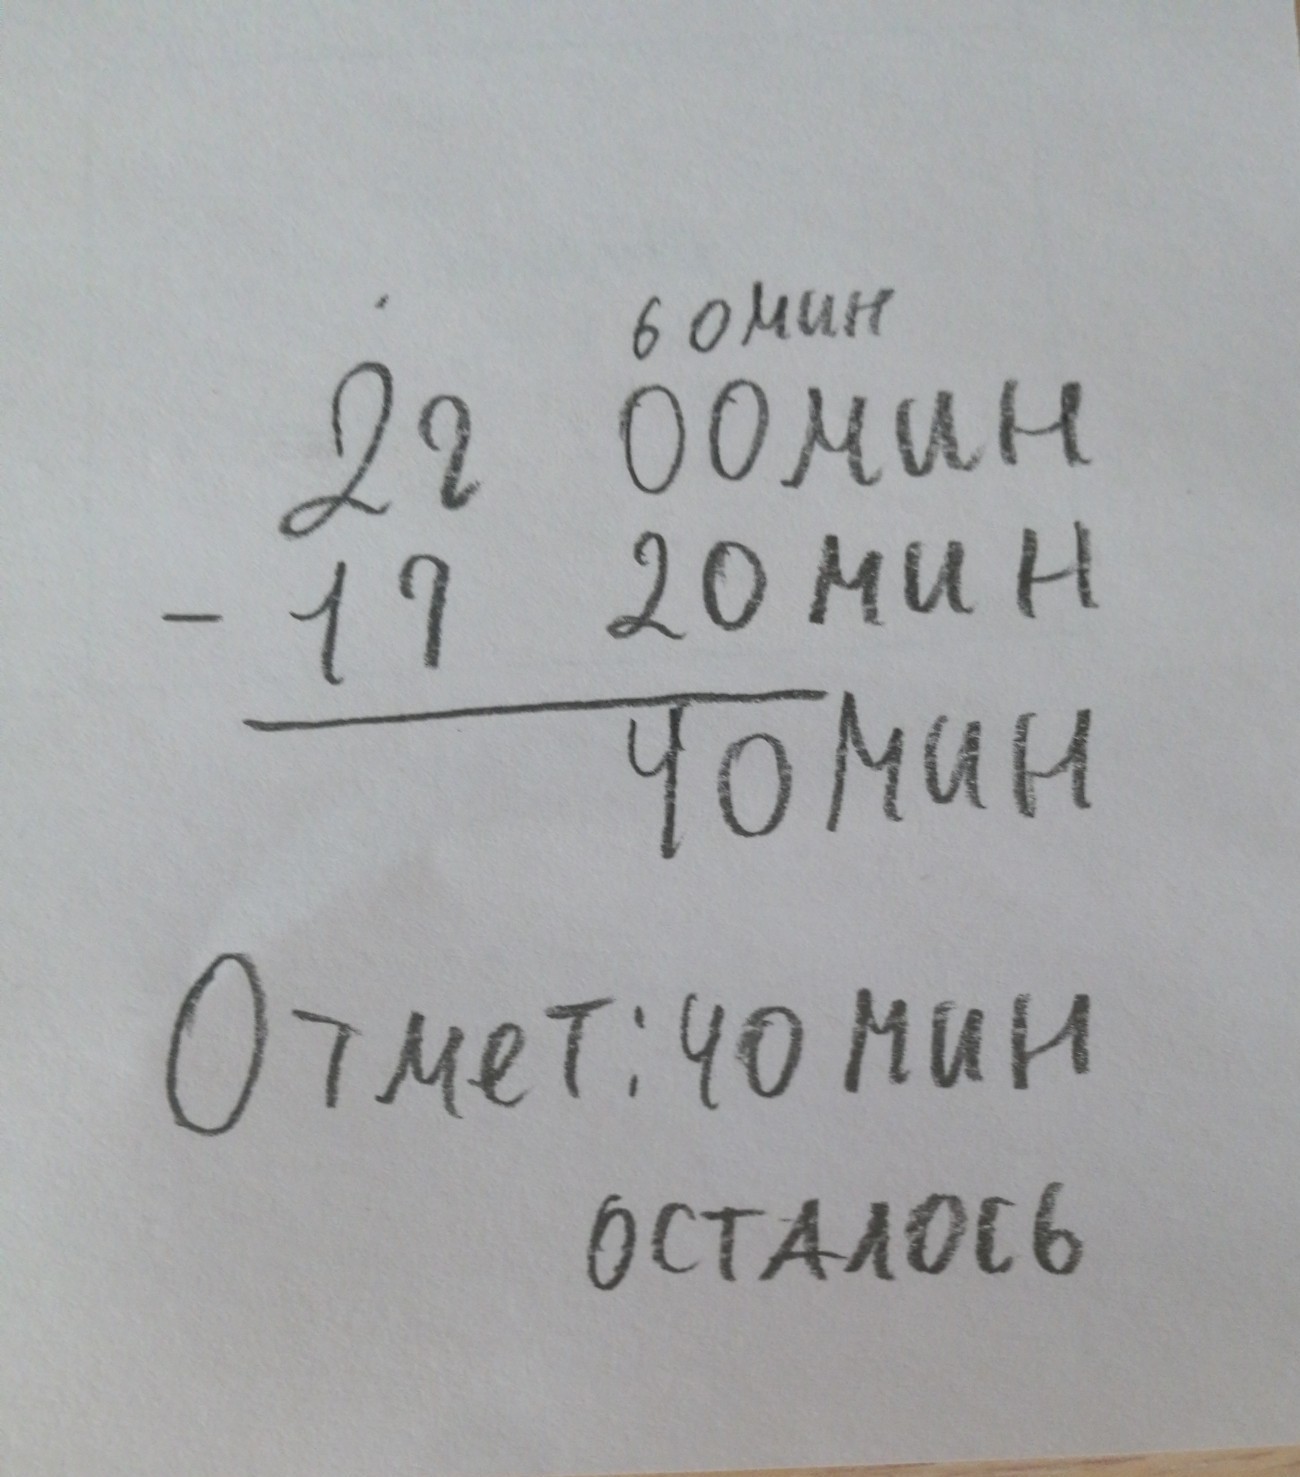 60мин
22 00мин
- 17 20мин
40мин
Отмет: 40 мин
осталось